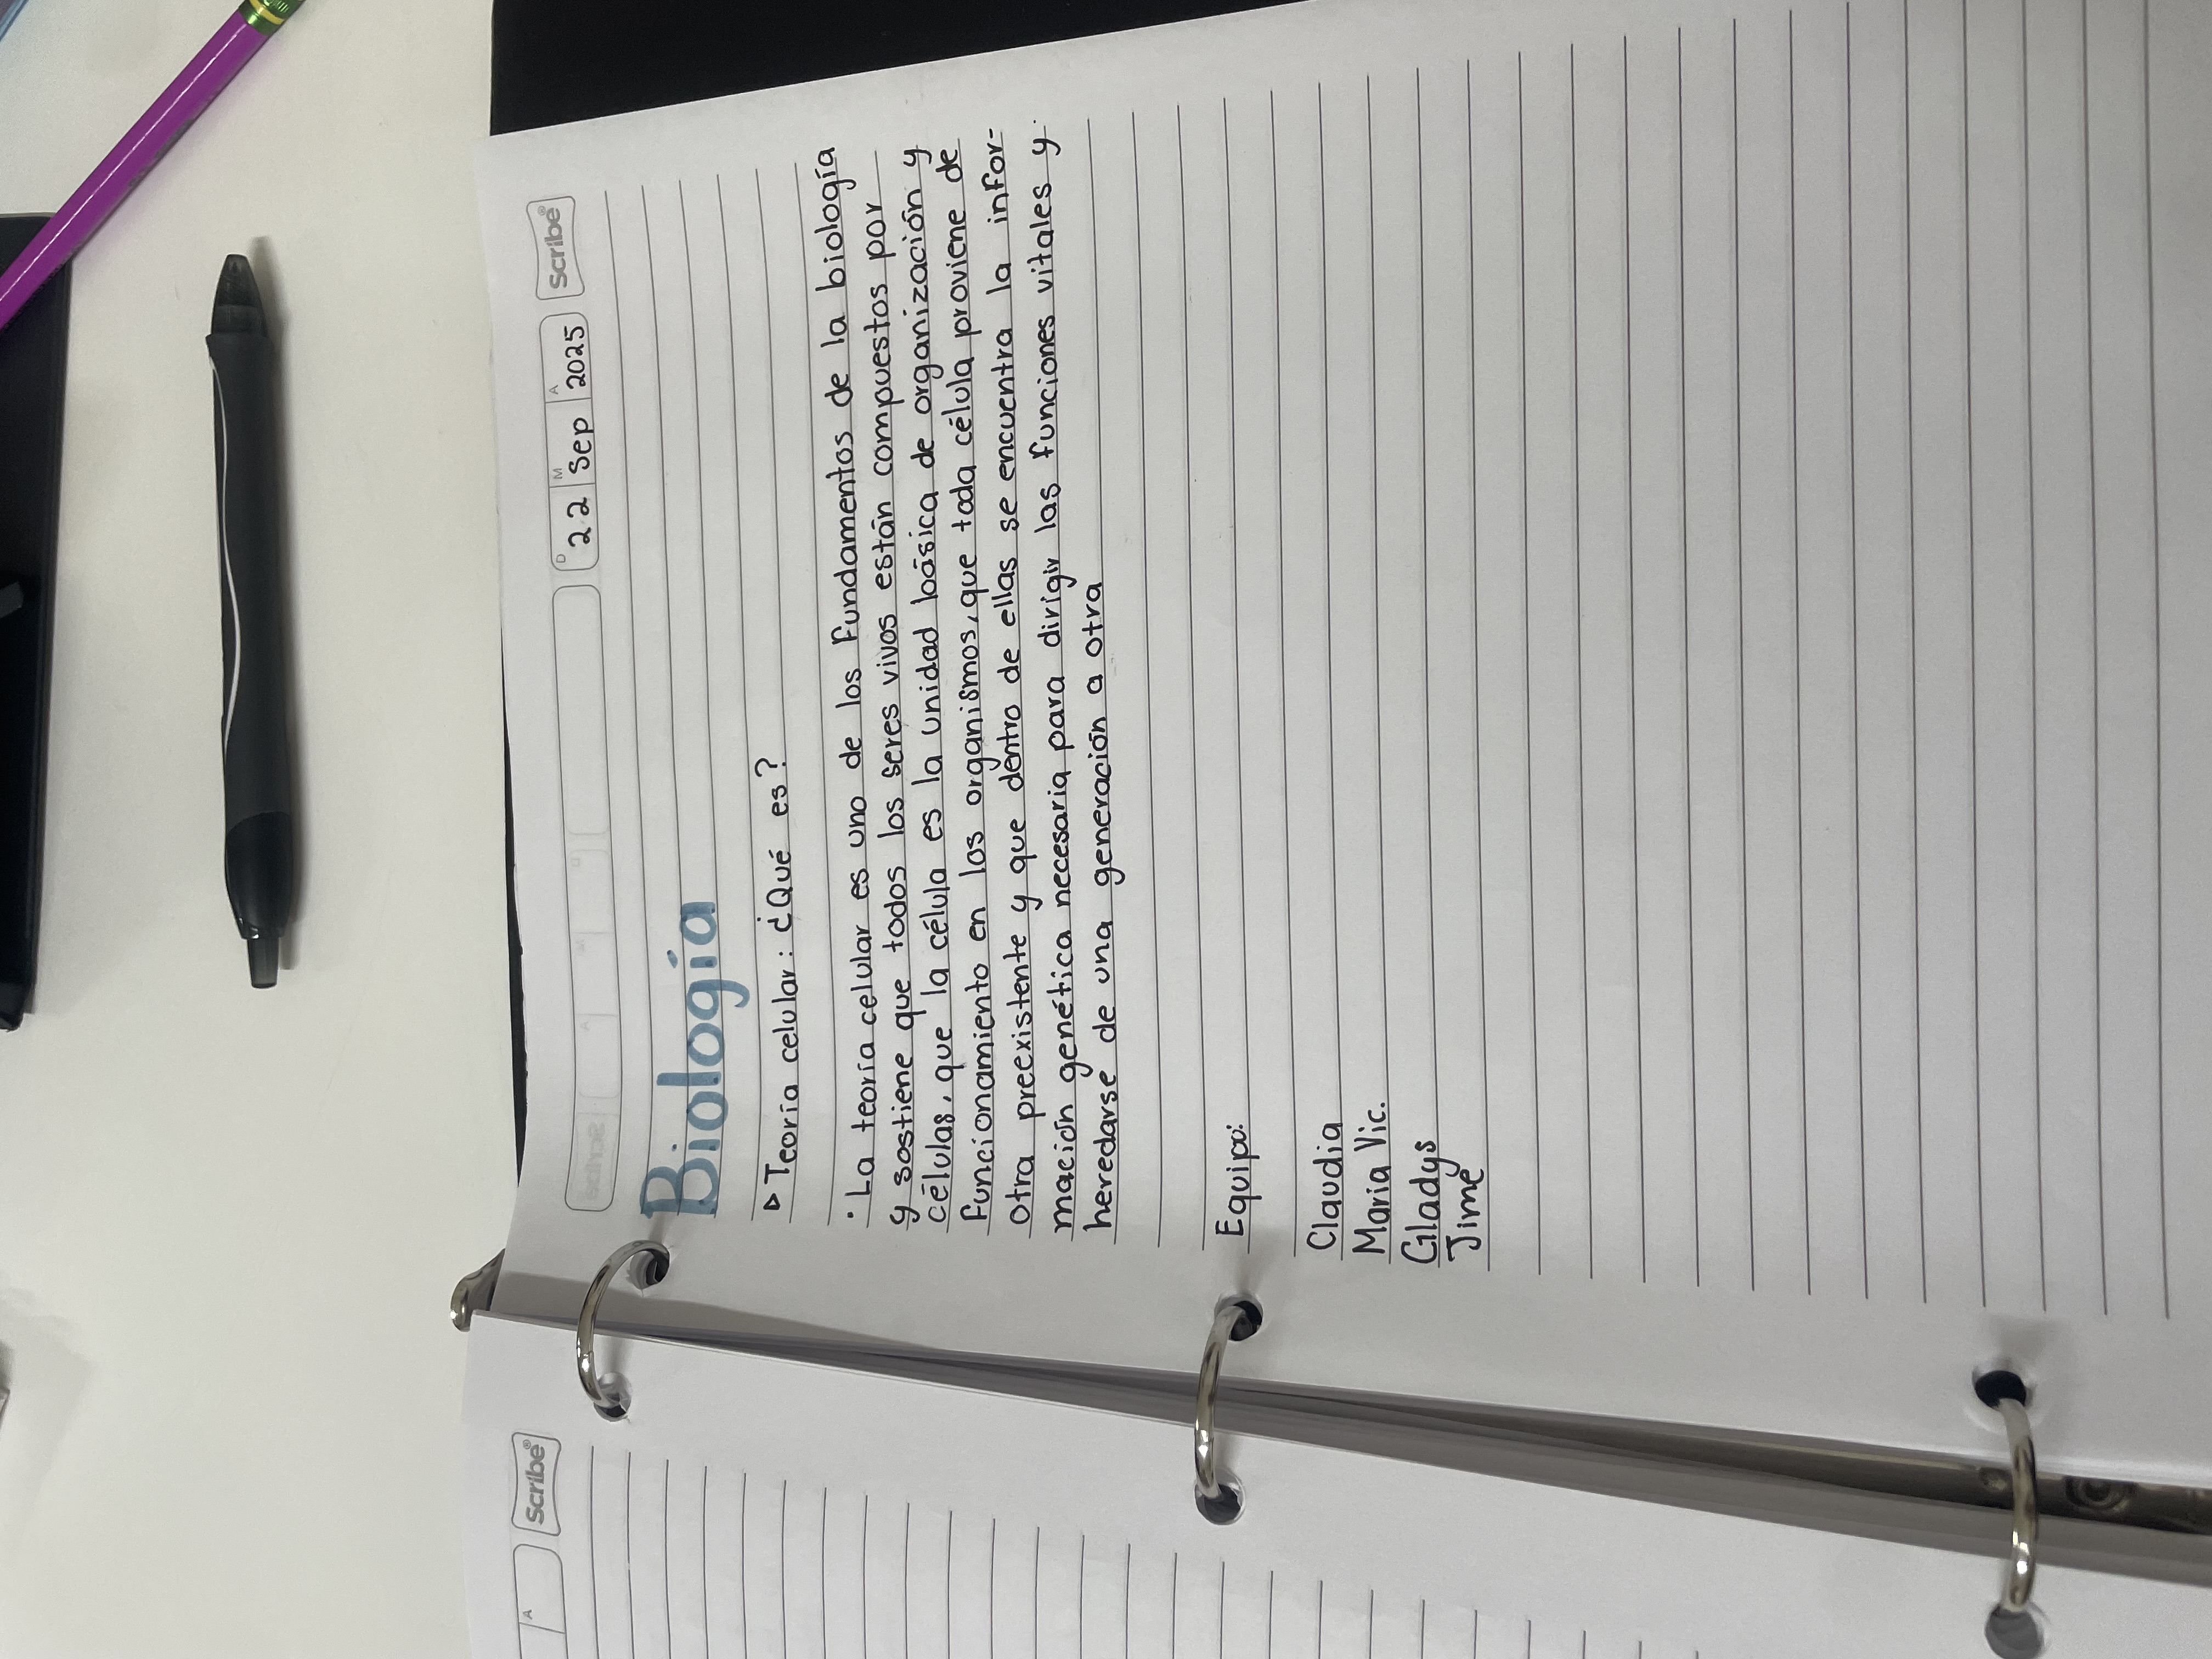 D M A
22 Sep 2025 Scribe®
Biología
▷ Teoría celular: ¿Qué es?
· La teoría celular es uno de los fundamentos de la biología
y sostiene que todos los seres vivos están compuestos por
células, que la célula es la unidad básica de organización y
funcionamiento en los organismos, que toda célula proviene de
otra preexistente y que dentro de ellas se encuentra la infor-
mación genética necesaria para dirigir las funciones vitales y
heredarse de una generación a otra
Equipo:
Claudia
Maria Vic.
Gladys
Jime
A
Scribe®